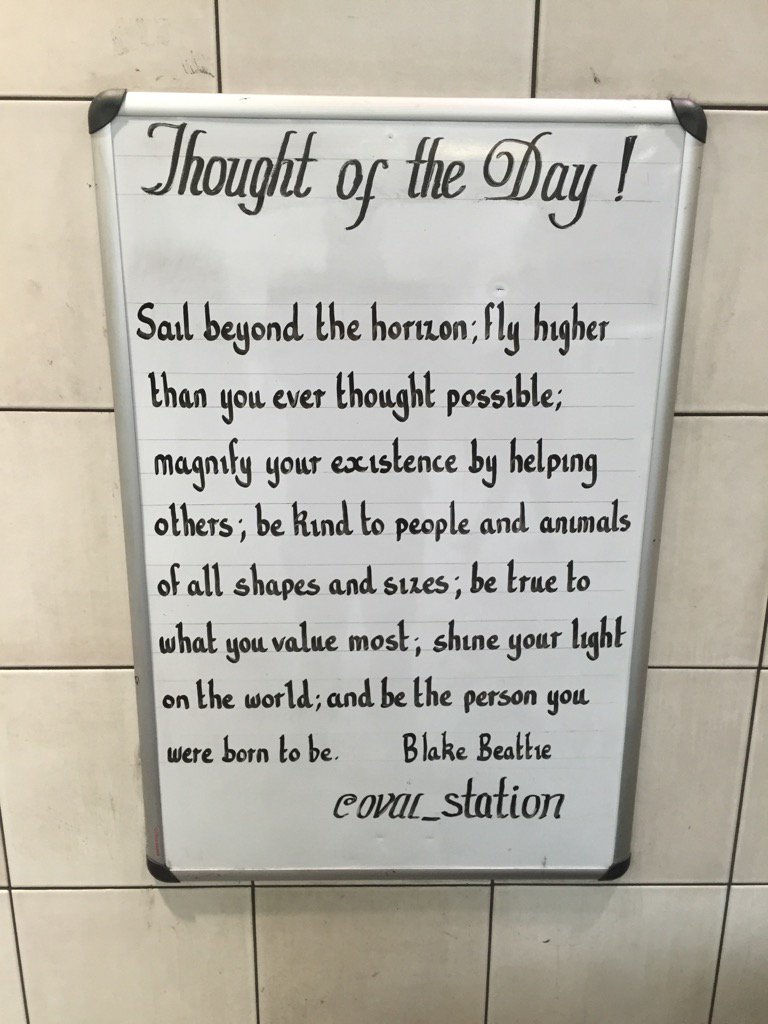 Thought of the Day !
Sail beyond the horizon; fly higher
than you ever thought possible;
magnify your existence by helping
others; be kind to people and animals
of all shapes and sizes; be true to
what you value most; shine your light
on the world; and be the person you
were born to be. Blake Beattie
@oval_station